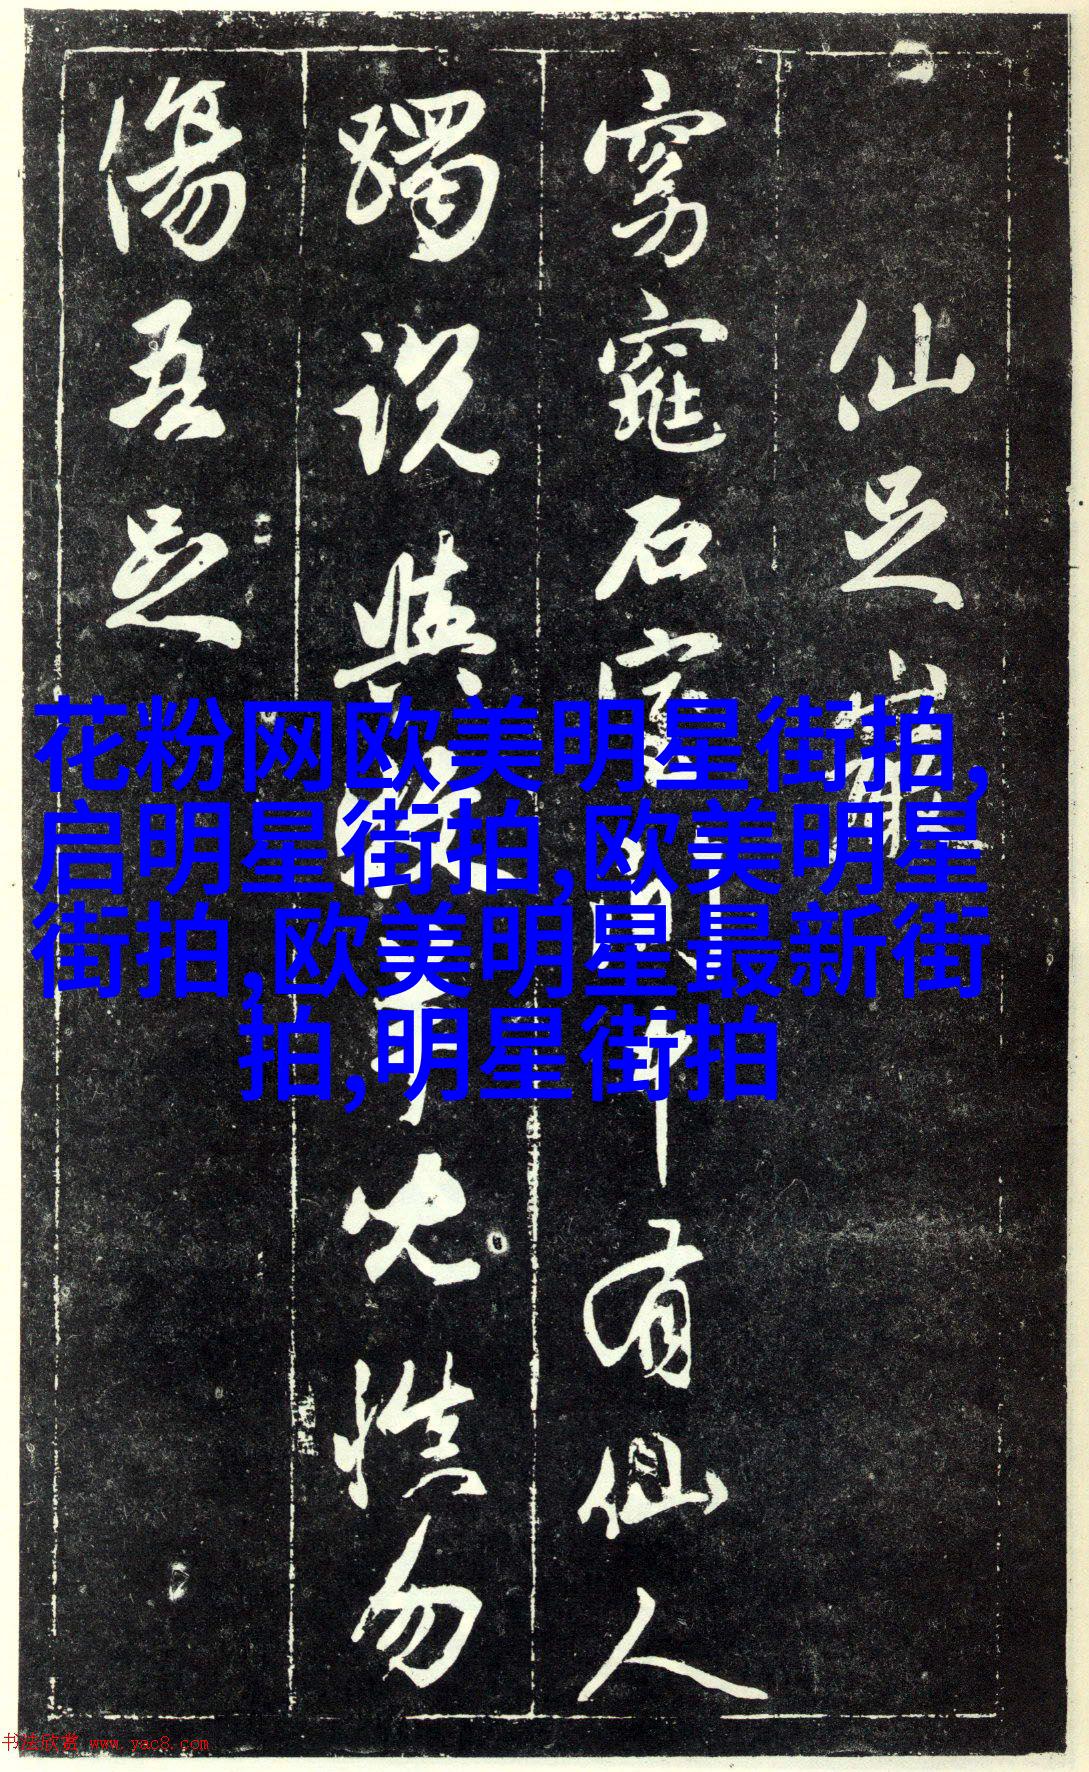 仙足巖
窈窕石室間中有仙人
躅説與勿
傷吾足
花粉网欧美明星街拍,
启明星街拍,欧美明星
街拍,欧美明星最新街
拍,明星街拍
书法欣赏 www.yac8.com